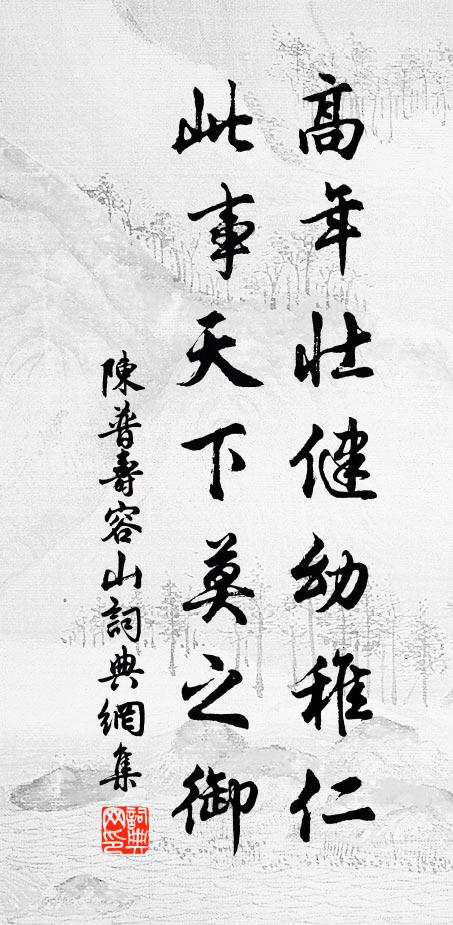 高年壯健幼稚仁
此事天下莫之御
陳普壽容山詞典網集
詞典網印